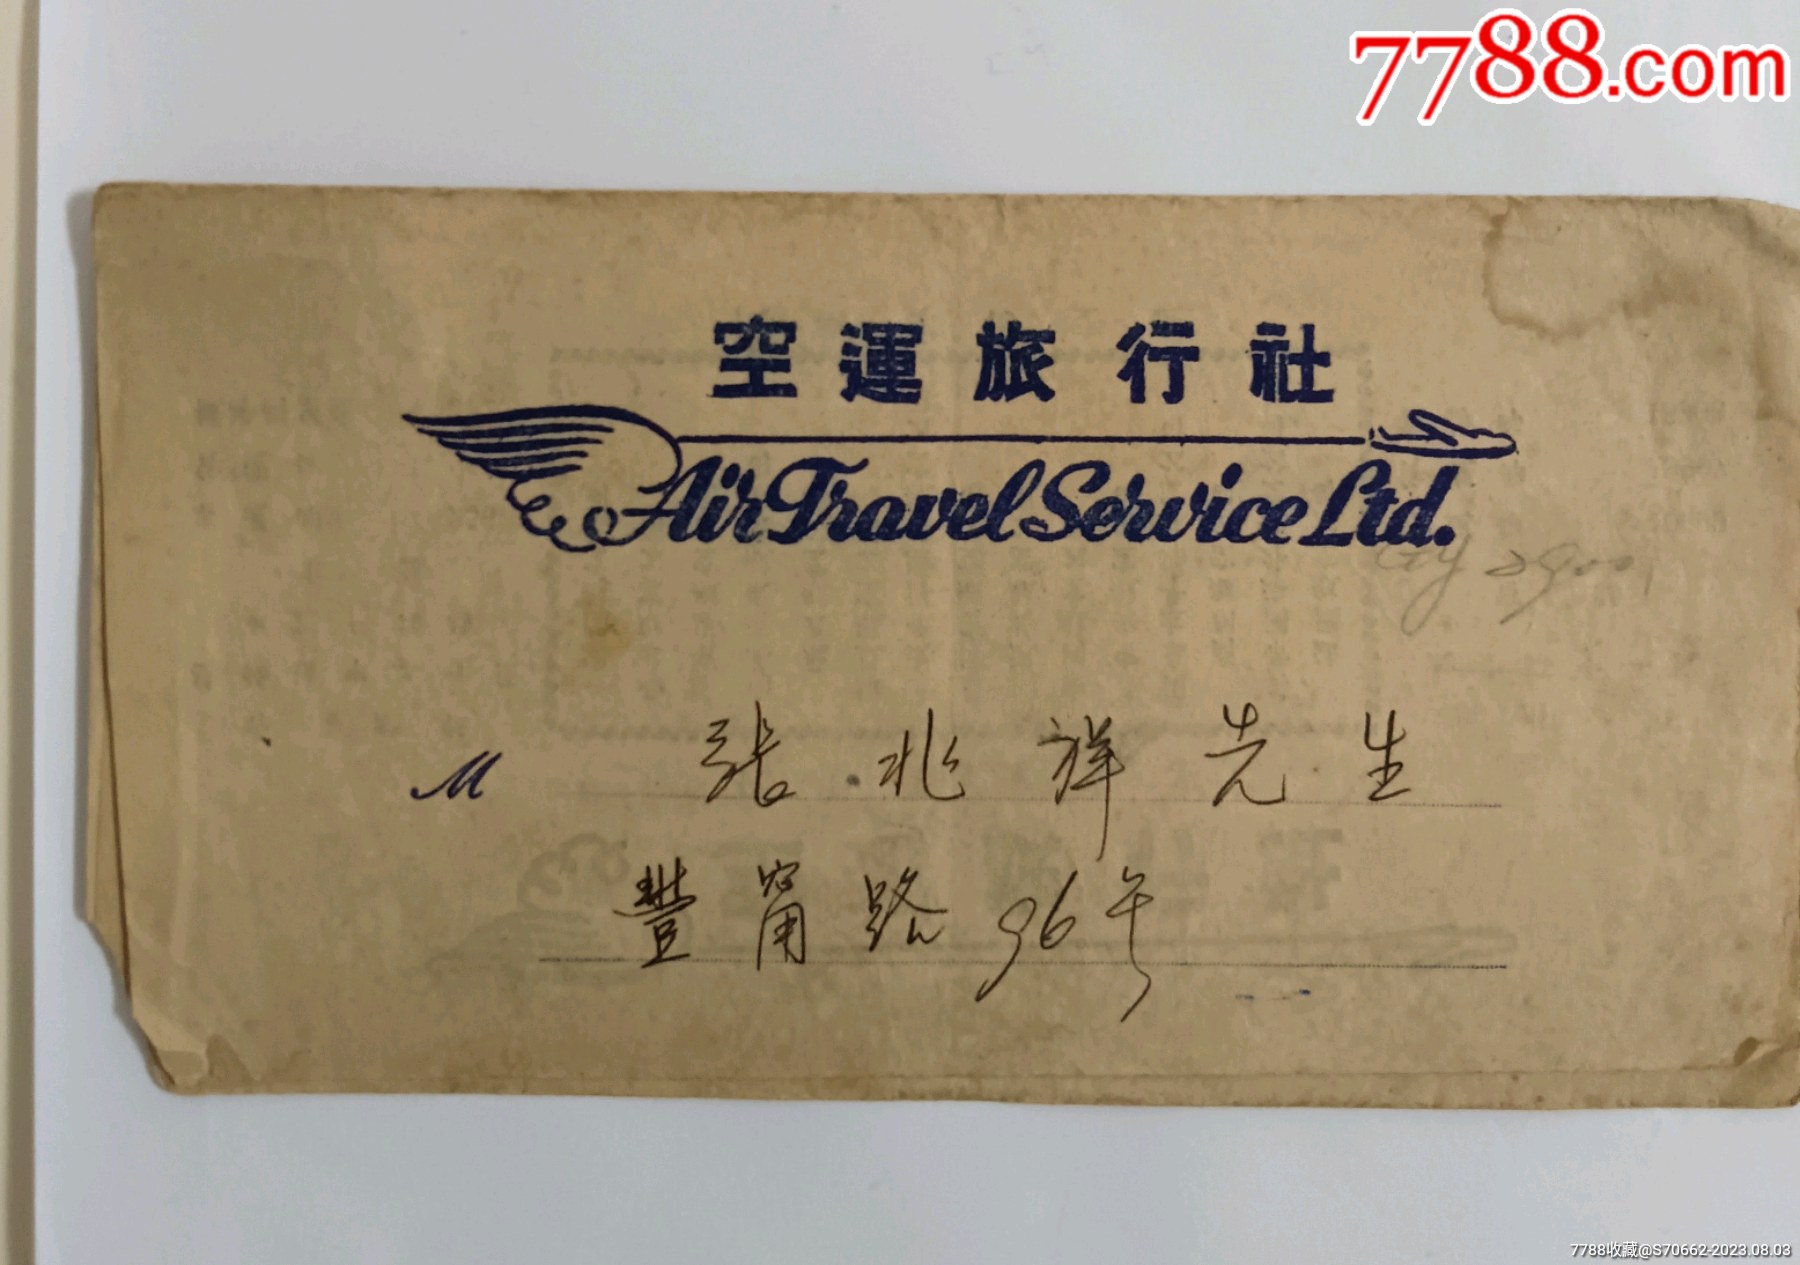 7788.com
空運旅行社
Air Travel Service Ltd.
M 張兆祥先生
豐甯路96号
7788收藏@S70662-2023.08.03